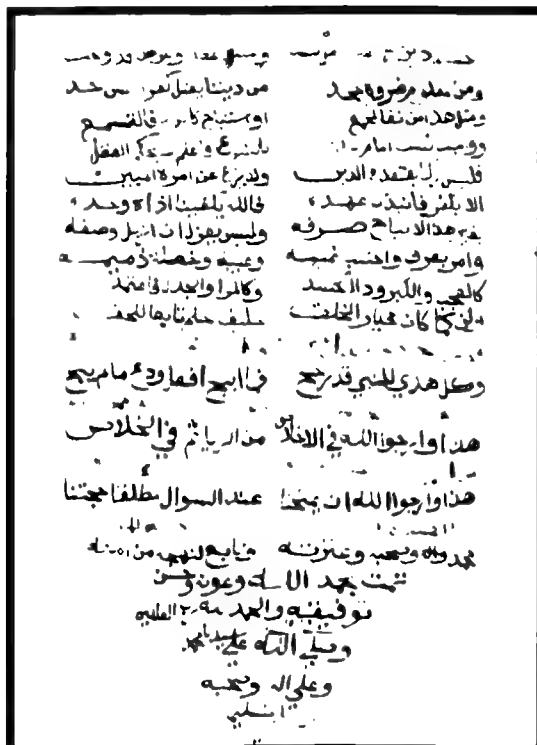 ومن لمعلوم ضرورة جحد من ديننا يقتل كفرا ليس حد
ومثل هذا من نفا لمجمع او استباح كالزنا فلتسمع
وواجب نصب امام بالشرع فاعلم لا بحكم العقل
فليس ركنا يعتقد في الدين ولا تزغ عن امره المبين
الا بكفر فانبذن عهده فالله يكفينا اذاه وحده
بغير هذا لا يباح صرفه وليس يعزل ان ازيل وصفه
وامر بعرف واجتنب نميمه وغيبه وخصلة ذميمه
كالعجب والكبر ودا الحسد وكالمرا والجدل فاعتمد
وكن كما كان خيار الخلق حليف حلم تابعا للحق
وكل هدي للنبي قد رجح فما ابيح افعل ودع ما لم يبح
هذا وارجوا الله في الاخلاص من الريا ثم في الخلاس
هذا وارجوا الله ان يمنحنا عند السوال مطلقا حجتنا
محمد واله وصحبه وعترته وتابع لنهجه من امته
تمت بحمد الله وعونه وحسن
توفيقه والحمد لله رب العالمين
وصلى الله على سيدنا محمد
وعلى اله وصحبه